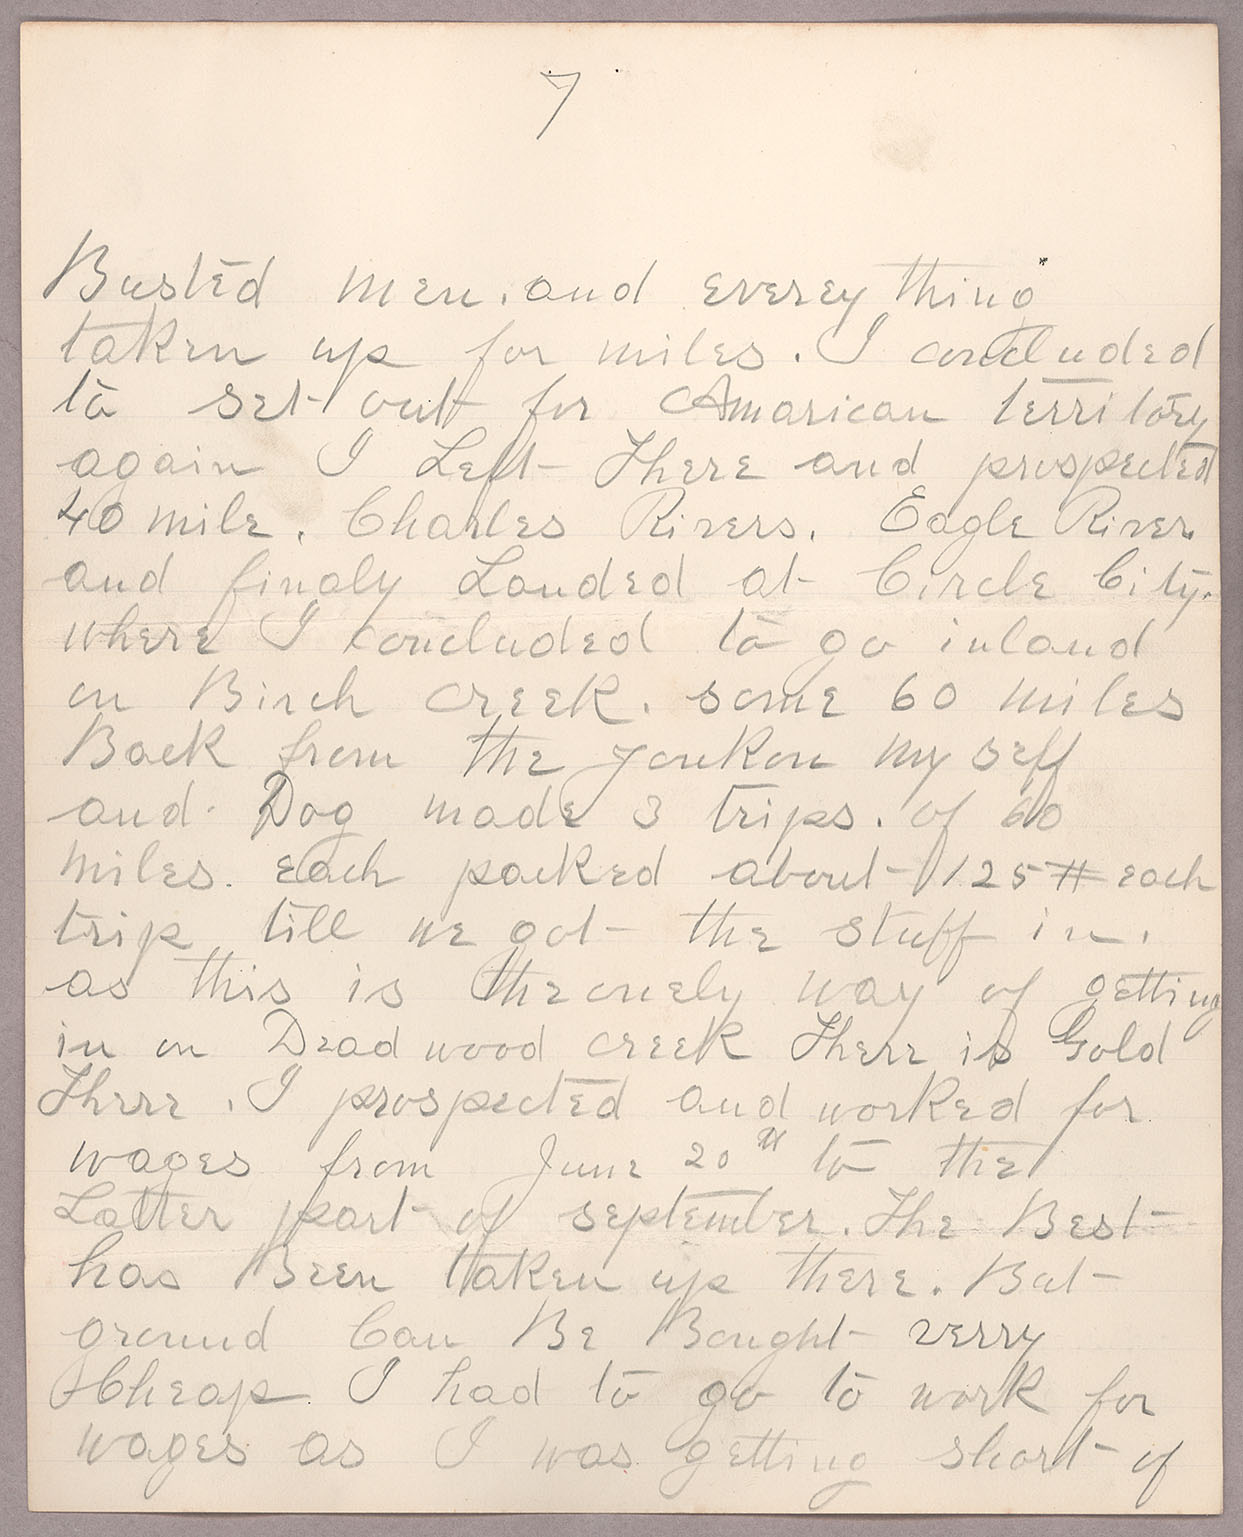 7
Busted men. and everey thing
taken up for miles. I concluded
to set out for Amarican territory
again I Left There and prospected
40 mile. Charles Rivers. Eagle River.
and finaly Landed at Circle City.
where I concluded to go inland
on Birch creek. some 60 miles
Back from the youkon my self
and Dog made 3 trips. of 60
miles. each packed about 125# each
trip till we got the stuff in.
as this is the onely way of getting
in on Dead wood creek There is Gold
There. I prospected and worked for
wages from June 20th to the
Latter part of september. The Best
has Been taken up there. But
ground Can Be Bought verry
Cheap I had to go to work for
wages as I was getting short of